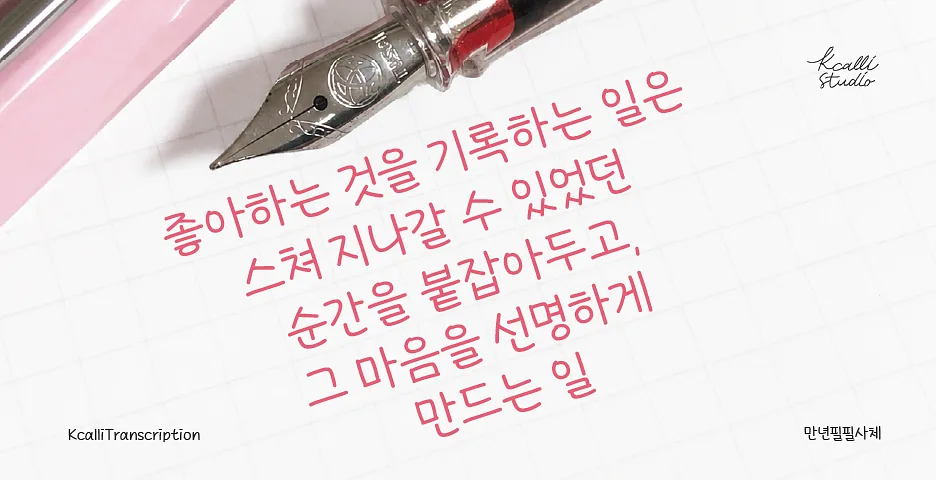 Kcalli
studio
좋아하는 것을 기록하는 일은
스쳐 지나갈 수 있었던
순간을 붙잡아두고,
그 마음을 선명하게
만드는 일
KcalliTranscription
만년필필사체